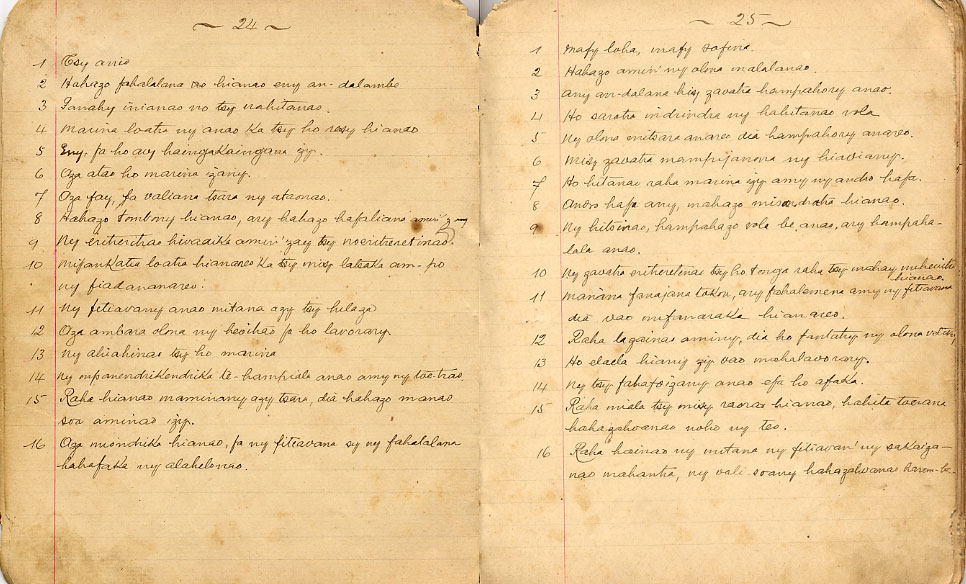 ~ 24 ~
1 Tsy anio
2 Hahazo fahalalana ao hianao eny an-dalambe
3 Fanahy inianao no tsy nahitanao.
4 Marina loatra ny anao ka tsy ho resy hianao
5 Eny, fa ho avy haingakaingana izy.
6 Aza atao ho marina izany.
7 Aza fay, fa valiana tsara ny ataonao.
8 Hahazo hianao, ary hahazo hafaliana amin' zany
9 Ny eritreritrao hivadika amin' zay tsy noeritreretinao.
10 Mifankatia loatra hianareo ka tsy misy labaka am-po
ny fiadananareo.
11 Ny fitiavany anao mitana azy tsy helaza
12 Aza ambara olona ny hevitrao fa ho lavorary.
13 Ny ahiahinao tsy ho marina
14 Ny mpanendrikendrika te-hampiala anao amy ny toetrao.
15 Raha hianao maminany azy tsara, dia hahazo manao
soa aminao izy.
16 Aza miondrika hianao, fa ny fitiavana sy ny fahalalana
hahafaka ny alahelonao.
~ 25 ~
1 Mafy loha, mafy sofina.
2 Hahazo amin' ny olona malalanao.
3 Any an-dalana hisy zavatra hampahory anao.
4 Ho sarotra indrindra ny hahitanao vola.
5 Ny olona mitsara anareo dia hampahory anareo.
6 Misy zavatra mampijanona ny hiaviany.
7 Ho hitanao raha marina izy amy ny andro hafa.
8 Andro hafa any, mahazo hianao.
9 Ny hitoinao, hampahazo vola be anao, ary hampaha-
lala anao.
10 Ny zavatra eritreretinao tsy ho tonga raha tsy mahay
hianao.
11 Manana fanajana, ary fahalemena amy ny fitiavana
dia vao mifanaraka hianareo.
12 Raha aminy, dia ho fantatry ny olona
13 Ho elaela hiany izy vao mahalavorary.
14 Ny tsy fahafoizany anao efa ho afaka.
15 Raha miala tsy misy hianao, hahita toerana
hahazahoanao noho ny teo.
16 Raha hainao ny mitana ny fitiavan' ny sakaiza-
nao mahantra, ny vali-soany hahazahoanao harem-be.